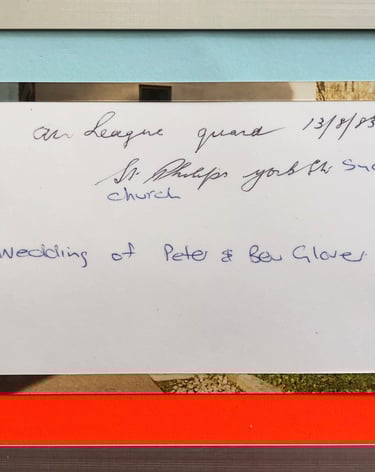 air League guard 13/8/83
St. Philips york St. Syd
church
Wedding of Peter & Bev Glover